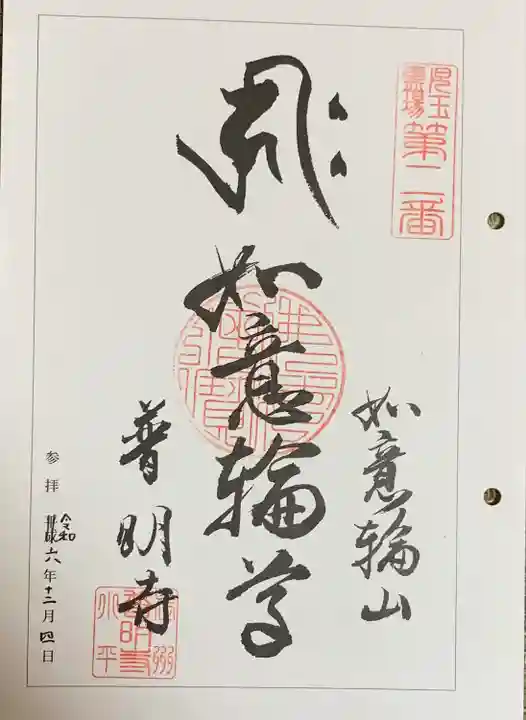 児玉
霊場
第二番
如意輪尊
如意輪山
普明寺
参拝 平成 令和六年十二月四日